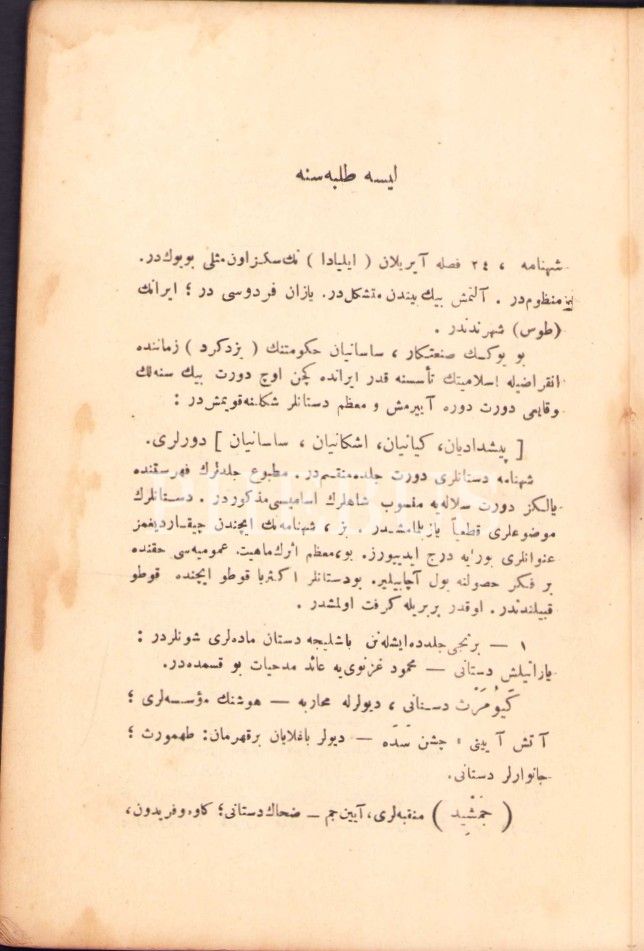 ليسه طلبه سنه
شهنامه ، ٢٤ فصله آيريلان ( ايليادا ) نك سكز اون مثلى بويوكدر.
منظومدر . آلتمش بيك بيتدن متشكلدر. يازان فردوسى در ؛ ايرانك
(طوس) شهرندندر .
بو يوكسك صنعتكار ، ساسانيان حكومتنك ( يزدكرد ) زماننده
انقراضيله اسلاميتك تأسسنه قدر ايرانده كچن اوچ دورت بيك سنه لك
وقايعى دورت دوره آييرمش و معظم دستانلر شكلنه قويمشدر :
[ پيشداديان، كيانيان، اشكانيان ، ساسانيان ] دورلرى.
شهنامه دستانلرى دورت جلده منقسمدر. مطبوع جلدلرك فهرسقنده
يالكز دورت سلاله يه منسوب شاهلرك اساميسى مذكوردر . دستانلرك
موضوعلرى قطعياً يازيلمامشدر . بز ، شهنامه نك ايچندن چيقارديغمز
عنوانلرى بورايه درج ايدييورز. بو، معظم اثرك ماهيت عموميه سى حقنده
بر فكر حصولنه يول آچابيلير. بودستانلر اكثريا قوطو ايچنده قوطو
قبيلندندر. اوقدر بربريله گرفت اولمشدر .
١ — برنجى جلدده ايشله نن باشليجه دستان ماده لرى شونلردر :
ياراديلش دستانى — محمود غزنوى يه عائد مدحيات بو قسمده در.
كَيُومَرْث دستانى ، ديولرله محاربه — هوشنك مؤسسه لرى ؛
آتش آيينى ، جشن سَدَه — ديولر باغلايان برقهرمان: طهمورث ؛
جانوارلر دستانى.
( جَمْشِيد ) منقبه لرى، آيين جم — ضحاك دستانى؛ كاوه و فريدون،